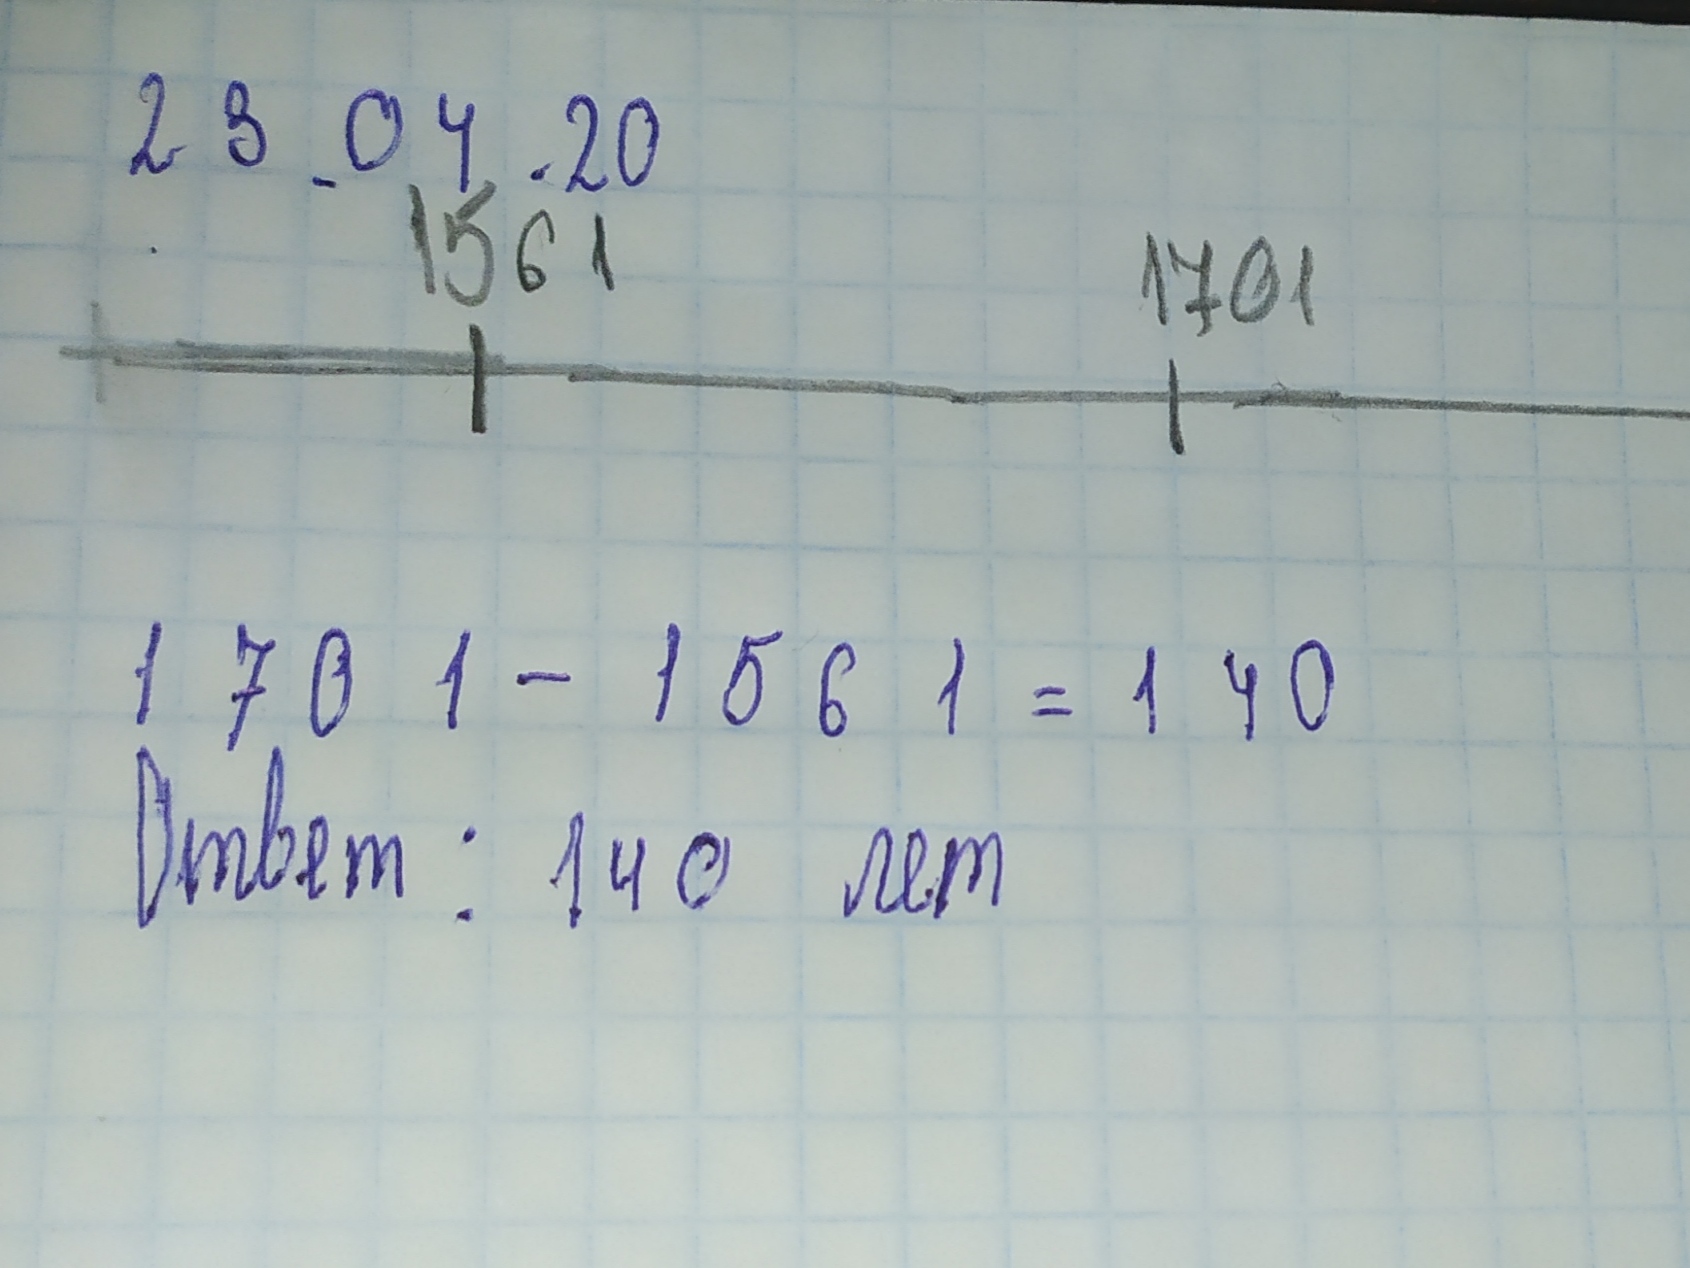 23.04.20
1561 1701
1701-1561=140
Ответ: 140 лет